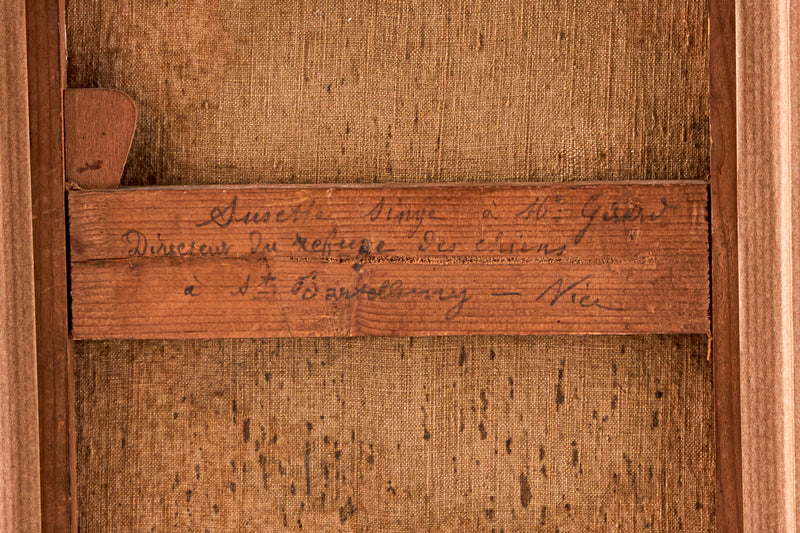 Susette singe à Mr Girard
Directeur du refuge des chiens
à Ste Bartellemy — Nice